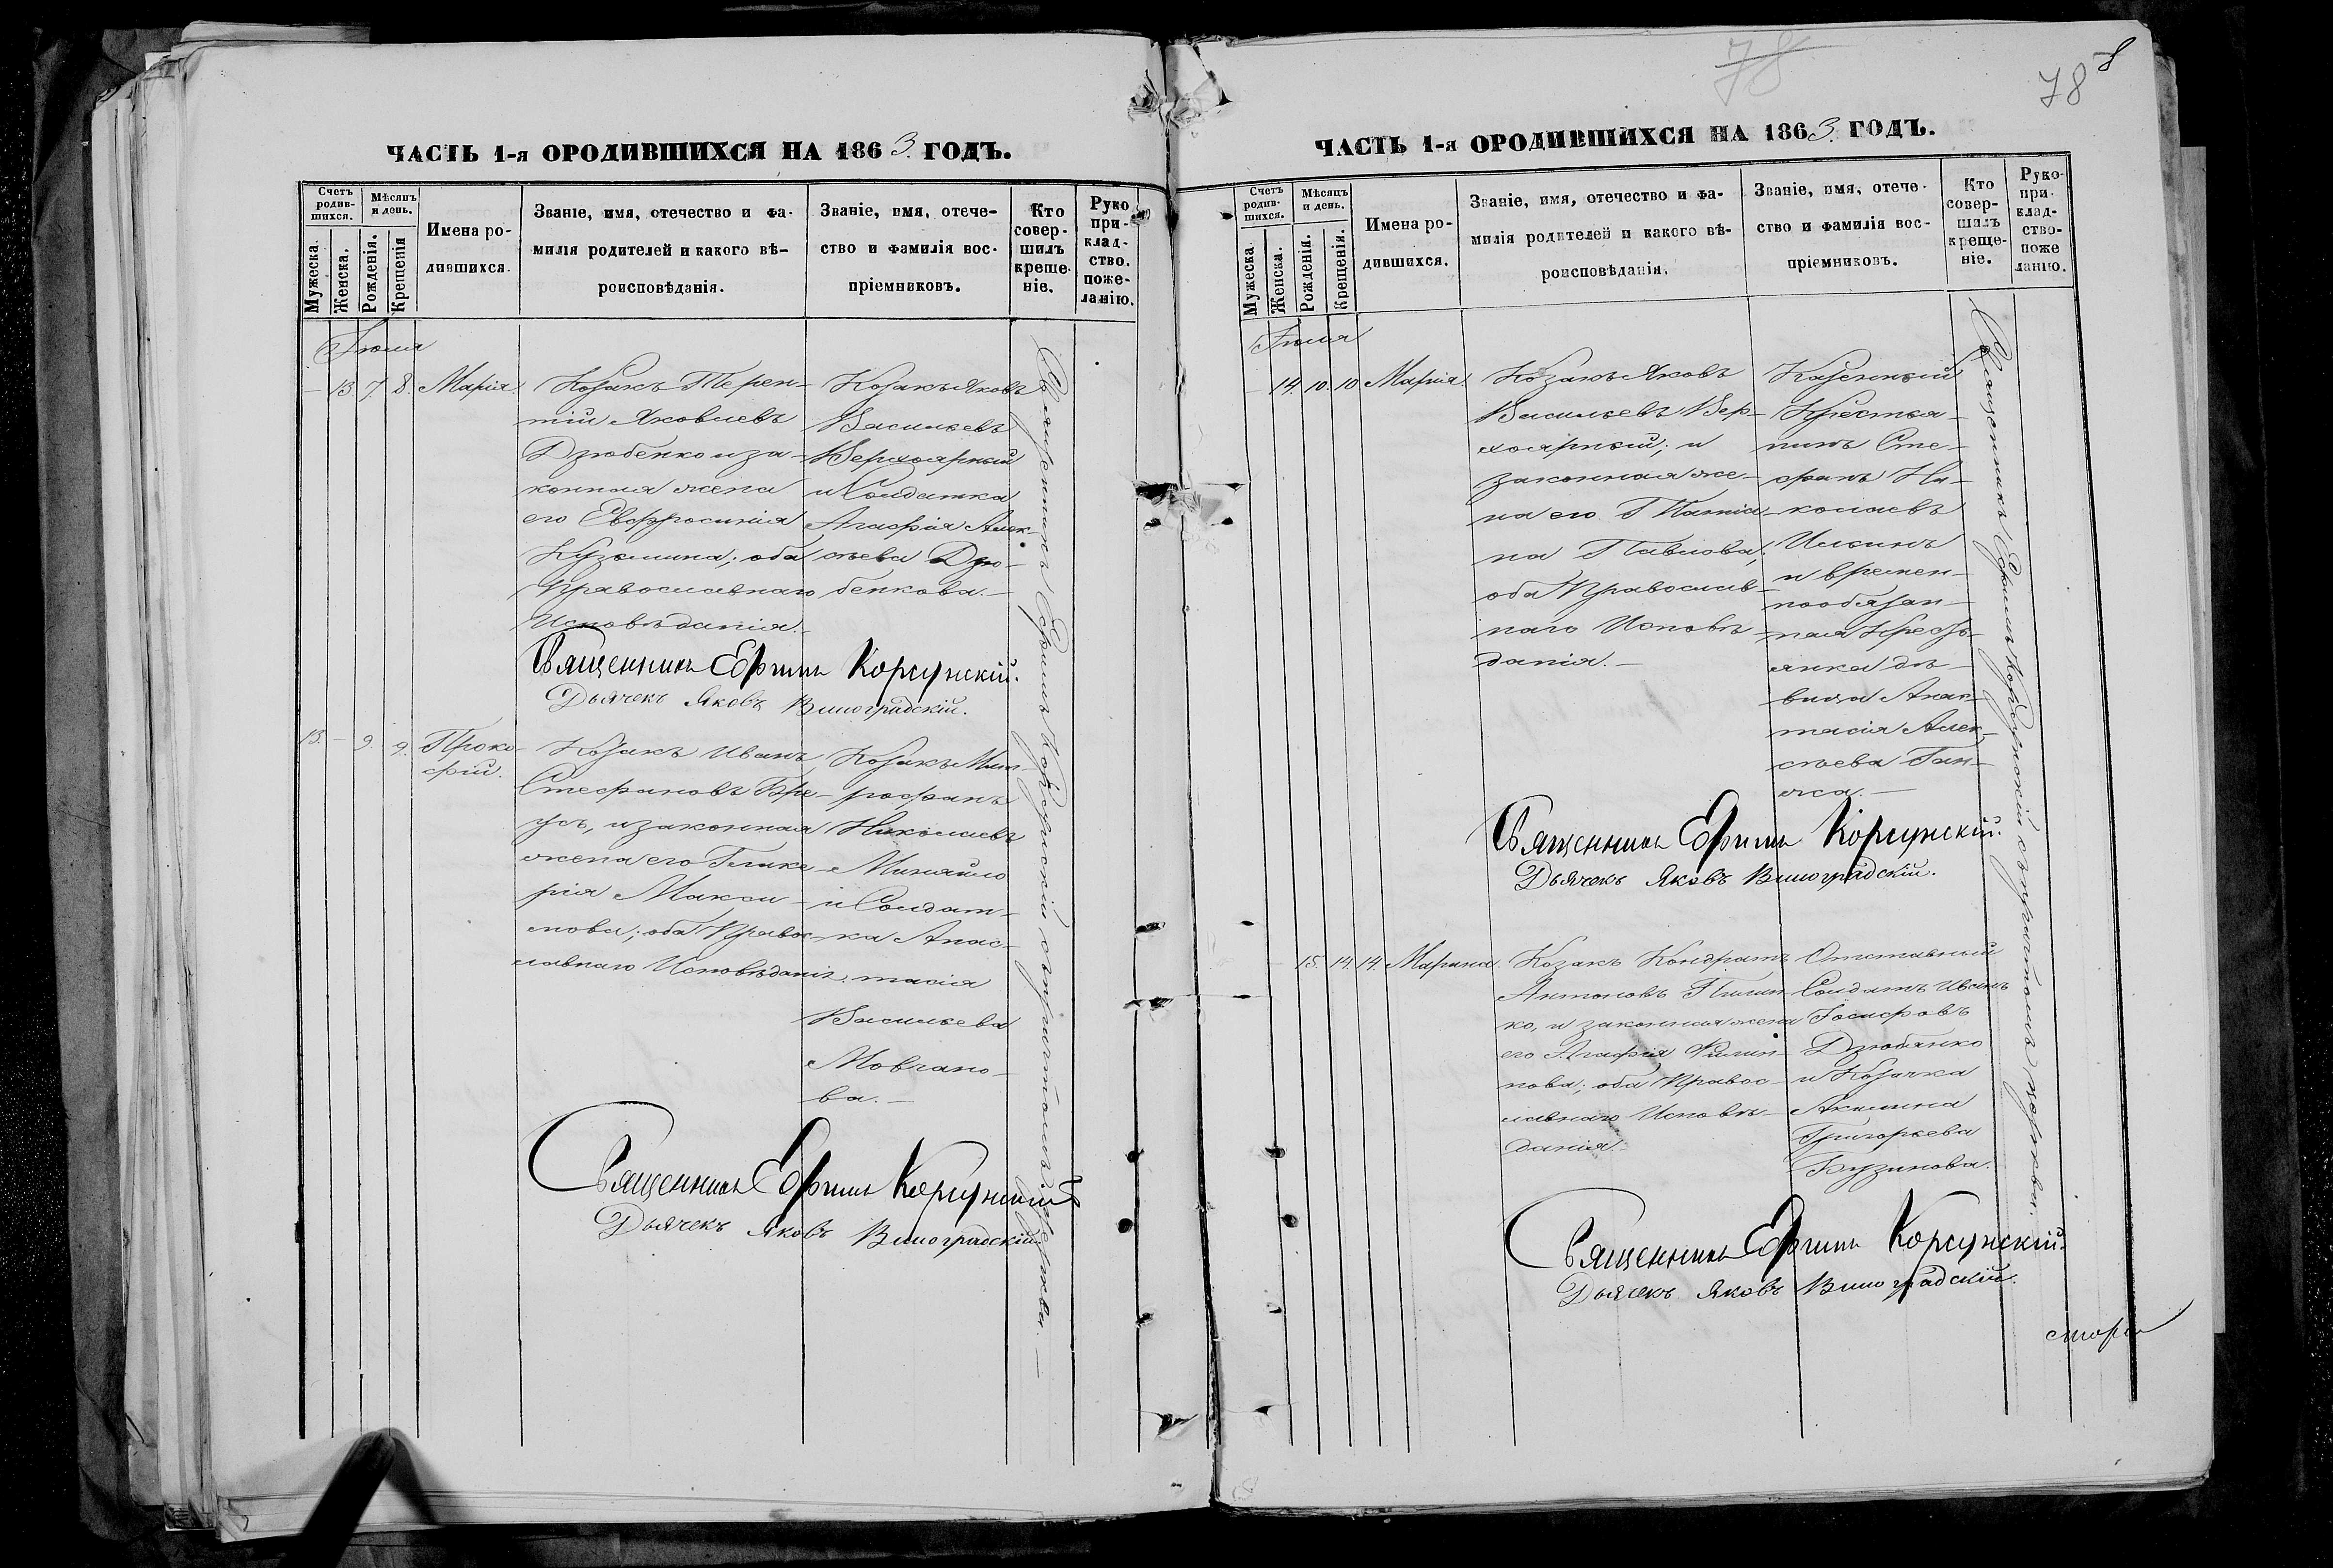 ЧАСТЬ 1-я ОРОДИВШИХСЯ НА 1863. ГОДЪ.
Счетъ родив-шихся.
Мѣсяцъ и день.
Мужеска.
Женска.
Рожденія.
Крещенія
Имена ро-
дившихся.
Званіе, имя, отечество и фа-
милія родителей и какого вѣ-
роисповѣданія.
Званіе, имя, отече-
ство и фамилія вос-
пріемниковъ.
Кто совер-шилъ креще-ніе.
Руко при-клад-ство. поже-ланію.
Іюля
— 13. 7. 8. Марія.
Козакъ Терен-
тій Яковлевъ
Дзюбенко и за-
конная жена
его Евфросинія
Кузьмина; оба
Православнаго
Исповѣданія.
Козакъ Яковъ
Васильевъ
Верхоярный
и Солдатка
Агафія Алек-
сѣева Дзю-
бенкова.
Священникъ Ефимъ Корсунскій.
Дьячекъ Яковъ Виноградскій.
13. — 9. 9. Проко-
фій.
Козакъ Иванъ
Стефановъ Бре-
усъ, и законная
жена его Глике-
рія Макси-
мова; оба Правос-
лавнаго Исповѣданія.
Козакъ Мит-
рофанъ
Николаевъ
Михайло
и Солдат-
ка Анас-
тасія
Васильева
Мовчано-
ва.
Священникъ Ефимъ Корсунскій
Дьячекъ Яковъ Виноградскій.
Священникъ Ефимъ Корсунскій съ причтомъ церкви.
78
78
8
ЧАСТЬ 1-я ОРОДИВШИХСЯ НА 1863. ГОДЪ.
Счетъ родив-шихся.
Мѣсяцъ и день.
Мужеска
Женска.
Рожденія.
Крещенія.
Имена ро-
дившихся.
Званіе, имя, отечество и фа-
милія родителей и какого вѣ-
роисповѣданія.
Званіе, имя, отече-
ство и фамилія вос-
пріемниковъ.
Кто совер-шилъ креще-ніе.
Руко-при-клад-ство-поже ланію.
Іюля
— 14. 10. 10 Марія.
Козакъ Яковъ
Васильевъ Вер-
хоярный; и
законная же-
на его Татіа-
на Павлова;
оба Православ-
наго Исповѣ-
данія.
Казенный
Крестья-
нинъ Сте-
фанъ Ни-
колаевъ
Илинъ
и времен-
нообязан-
ная Кресть-
янка дѣ-
вица Анас-
тасія Алек-
сѣева Ган-
жа.
Священникъ Ефимъ Корсунскій.
Дьячекъ Яковъ Виноградскій.
— 15. 14. 14. Марина.
Козакъ Кондратъ
Антоновъ Пилип-
ко, и законная жена
его Агафія Филип-
пова; оба Правос-
лавнаго Исповѣ-
данія.
Отставный
Солдатъ Иванъ
Іосифовъ
Дзюбанко
и Козачка
Акилина
Григорьева
Бузинова.
Священникъ Ефимъ Корсунскій.
Дьячекъ Яковъ Виноградскій.
Священникъ Ефимъ Корсунскій съ причтомъ церкви.